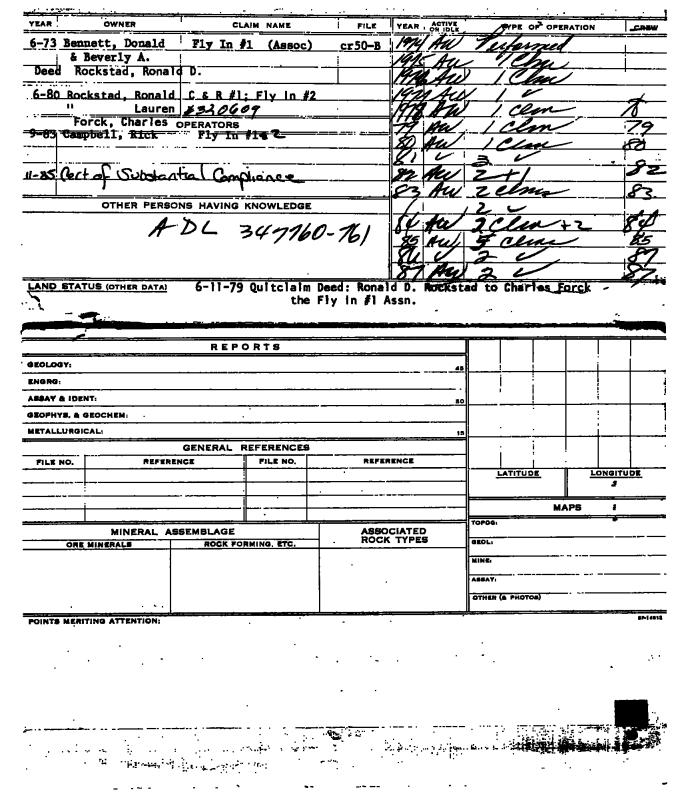 YEAR OWNER CLAIM NAME FILE YEAR ACTIVE OR IDLE TYPE OF OPERATION CREW
6-73 Bennett, Donald Fly In #1 (Assoc) cr50-B 1974 AW Performed
& Beverly A. 1975 AW 1 Clm
Deed Rockstad, Ronald D. 1976 AW 1 Clm
6-80 Rockstad, Ronald C & R #1; Fly In #2 1977 AW 1 ✓
" Lauren #320609 1978 AW 1 Clm
Forck, Charles OPERATORS 79 AW 1 Clm 79
9-83 Campbell, Rick Fly In #1 & 2 80 AW 1 Clm 80
81 ✓ 3 ✓
11-85 Cert of Substantial Compliance 82 AW 2 + 1 82
83 AW 2 Clms 83
OTHER PERSONS HAVING KNOWLEDGE 2 ✓
ADL 347760-761 84 AW 2 Clm +2 84
85 AW Clms 85
86 ✓ 2 ✓ 87
87 AW 2 ✓ 87
LAND STATUS (OTHER DATA) 6-11-79 Quitclaim Deed: Ronald D. Rockstad to Charles Forck -
the Fly In #1 Assn.
REPORTS
GEOLOGY: 45
ENGRG:
ASSAY & IDENT: 50
GEOPHYS. & GEOCHEM:
METALLURGICAL: 15
GENERAL REFERENCES
FILE NO. REFERENCE FILE NO. REFERENCE
LATITUDE LONGITUDE
MAPS
MINERAL ASSEMBLAGE ASSOCIATED ROCK TYPES
ORE MINERALS ROCK FORMING, ETC.
TOPOG:
GEOL:
MINE:
ASSAY:
OTHER (& PHOTOS)
POINTS MERITING ATTENTION: